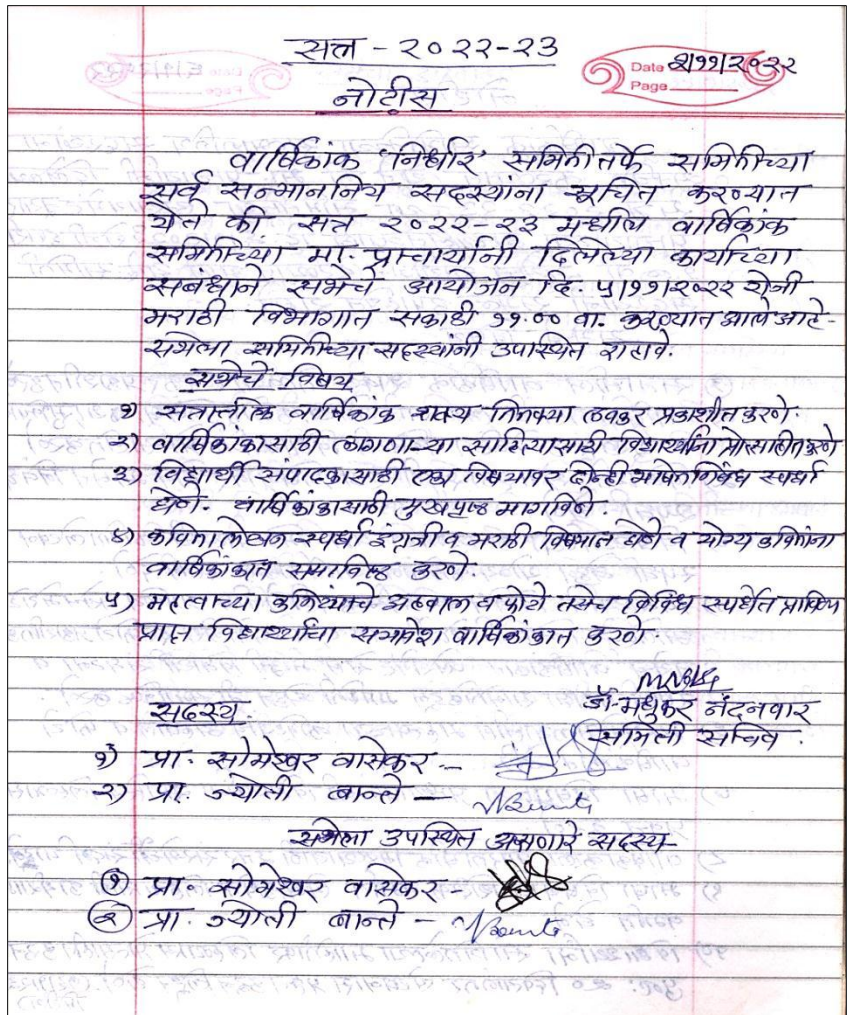 सत्र - २०२२-२३
Date २/११/२०२२
Page
नोटीस
वार्षिकांक 'निर्धार' समितीतर्फे समितीच्या
सर्व सन्माननिय सदस्यांना सूचित करण्यात
येते की सत्र २०२२-२३ मधील वार्षिकांक
समितीच्या मा. प्राचार्यांनी दिलेल्या कार्याच्या
सबंधाने सभेचे आयोजन दि. ५/११/२०२२ रोजी
मराठी विभागात सकाळी ११.०० वा. करण्यात आले आहे.
सभेला समितीच्या सदस्यांनी उपस्थित राहावे.
सभेचे विषय
१) सत्रातील वार्षिकांक शक्य तितक्या लवकर प्रकाशीत करणे.
२) वार्षिकांकासाठी लागणाऱ्या साहित्यासाठी विद्यार्थ्यांना प्रोत्साहीत करणे
३) विद्यार्थी संपादकासाठी एका विषयावर दोन्ही भाषेत निबंध स्पर्धा
घेणे. वार्षिकांकासाठी मुखपृष्ठ मागविणे
४) कविता लेखन स्पर्धा इंग्रजी व मराठी विषयात घेणे व योग्य कवितांना
वार्षिकांकात समाविष्ठ करणे.
५) महत्वाच्या कमिट्याचे अहवाल व फोटो तसेच विविध स्पर्धेत प्राविण्य
प्राप्त विद्यार्थ्यांचा समावेश वार्षिकांकात करणे.
डॉ. मधुकर नंदनवार
सदस्य
समिती सचिव.
१) प्रा. सोमेश्वर वासेकर -
२) प्रा. ज्योती बान्ते -
सभेला उपस्थित असणारे सदस्य-
१) प्रा. सोमेश्वर वासेकर -
२) प्रा. ज्योती बान्ते -